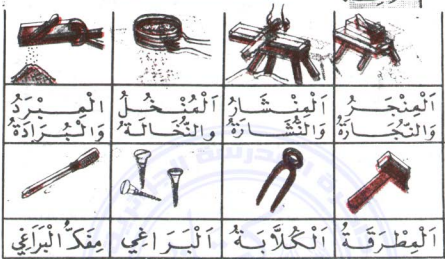 اَلْمِنْجَرُ وَالنُّجَارَةُ
اَلْمِنْشَارُ وَالنُّشَارَةُ
اَلْمُنْخُلُ والنُّخَالَةُ
الْمِبْرَدُ وَالْبُرَادَةُ
اَلْمِطْرَقَةُ
اَلْكُلَّابَةُ
اَلْبَرَاغِي
مِفَكُّ الْبَرَاغِي